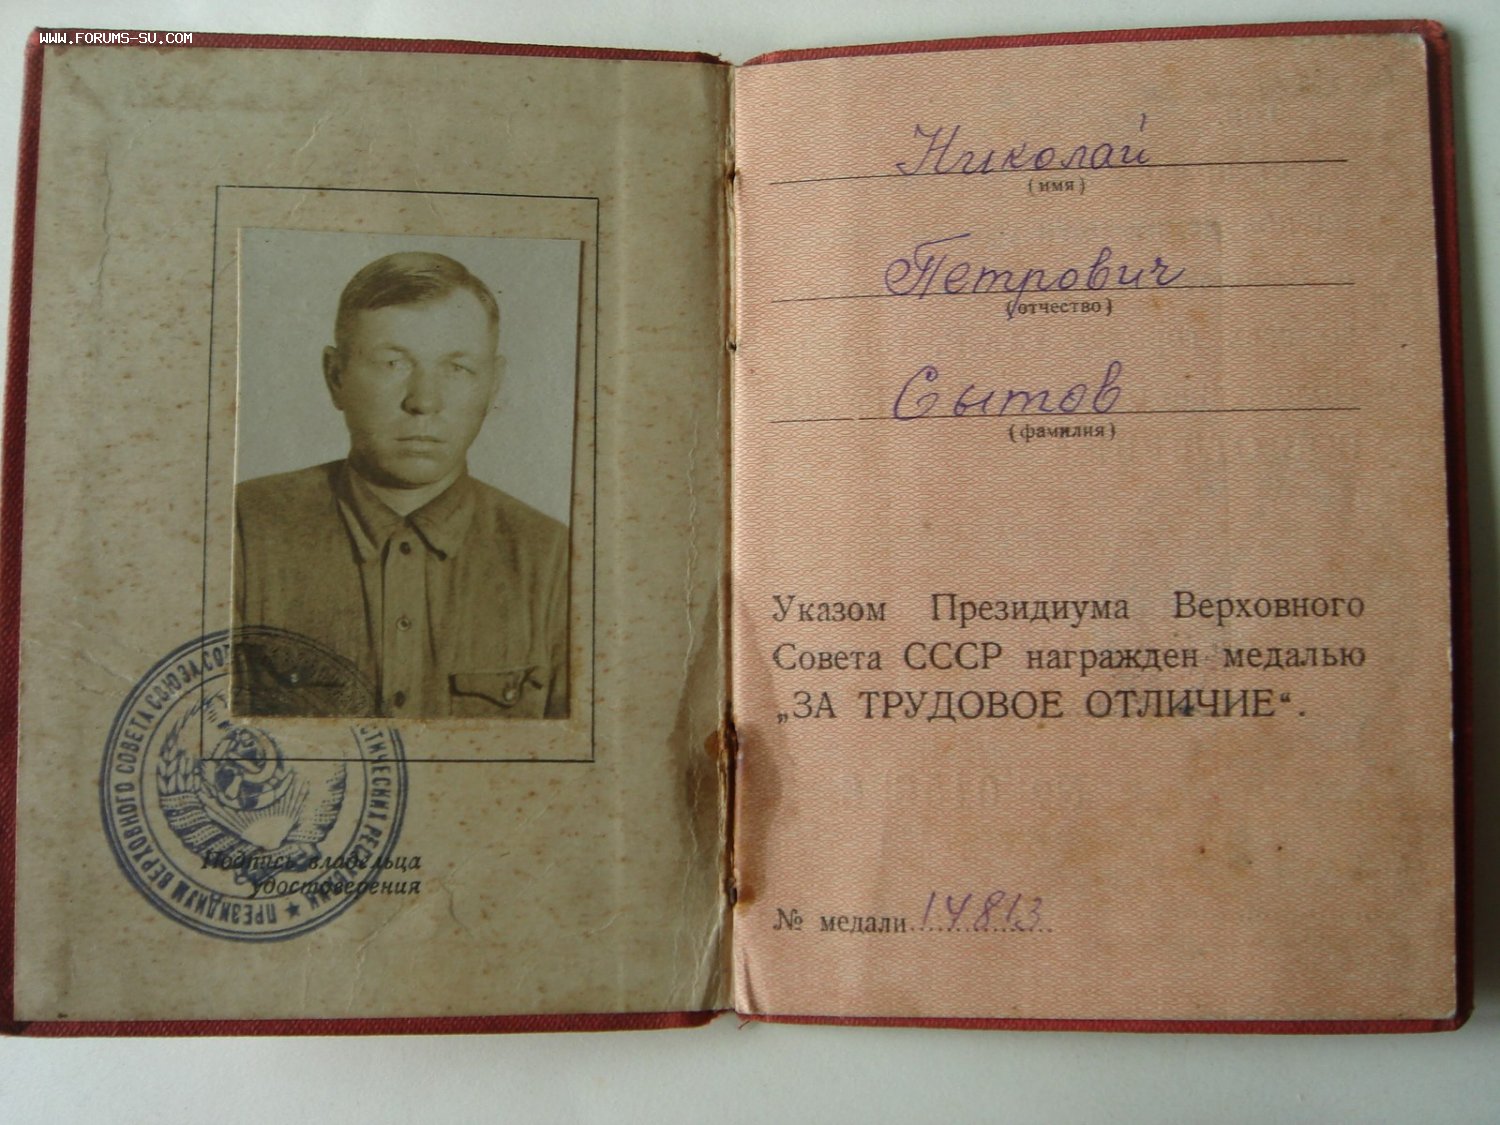 WWW.FORUMS-SU.COM
ПРЕЗИДИУМ ВЕРХОВНОГО СОВЕТА СОЮЗА
Подпись владельца
удостоверения
Николай
(имя)
Петрович
(отчество)
Сытов
(фамилия)
Указом Президиума Верховного
Совета СССР награжден медалью
„ЗА ТРУДОВОЕ ОТЛИЧИЕ“.
№ медали 14813